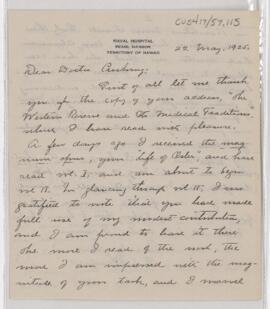 CUS417/57.115
NAVAL HOSPITAL
PEARL HARBOR
TERRITORY OF HAWAII
22 May, 1925.
Dear Doctor Cushing:
First of all let me thank
you for the copy of your address, "The
Western Reserve and Its Medical Traditions"
which I have read with pleasure.
A few days ago I received the mag-
num opus, your "Life of Osler", and have
read vol. I, and am about to begin
vol. II. In glancing through vol. II, I was
gratified to note that you have made
full use of my modest contribution,
and I am proud to have it there
The more I read of the work, the
more I am impressed with the mag-
nitude of your task, and I marvel